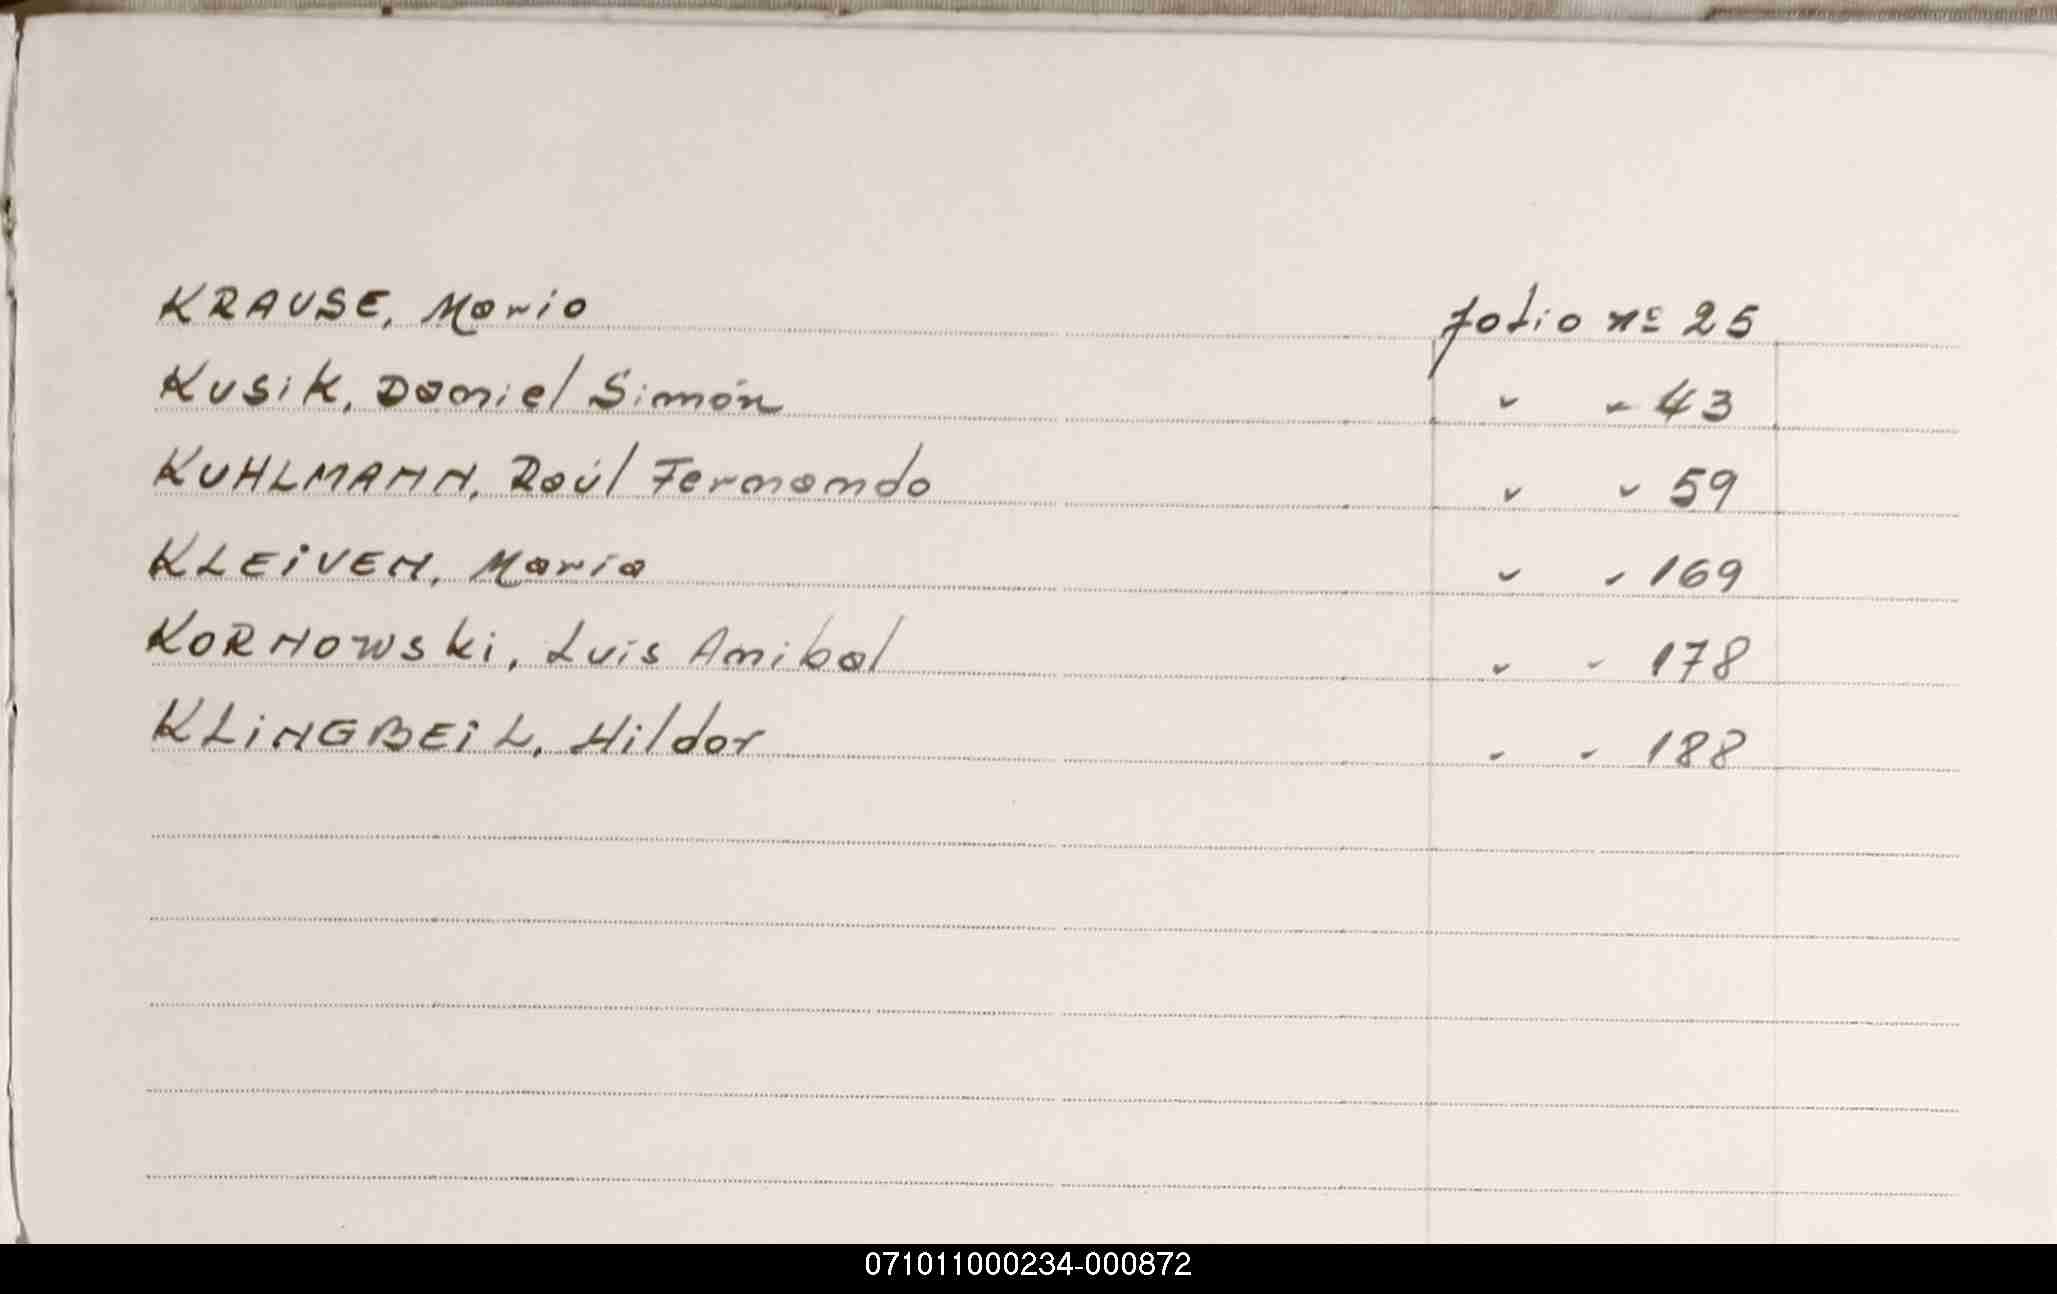 KRAUSE, Mario folio nº 25
KUSIK, Daniel Simón " " 43
KUHLMANN, Raúl Fernando " " 59
KLEIVEN, Maria " " 169
KORNOWSKI, Luis Anibal " " 178
KLINGBEIL, Hildor " " 188
071011000234-000872